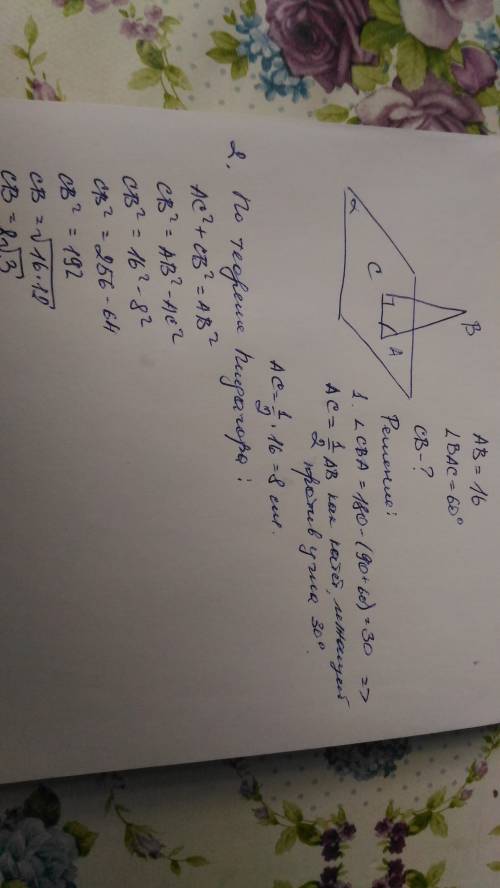 AB = 16
∠BAC = 60°
CB - ?
α
C
B
A
Решение:
1. ∠CBA = 180 - (90 + 60) = 30 =>
AC = 1/2 AB как катет, лежащий
против угла 30°.
AC = 1/2 · 16 = 8 см.
2. По теореме Пифагора:
AC² + CB² = AB²
CB² = AB² - AC²
CB² = 16² - 8²
CB² = 256 - 64
CB² = 192
CB = √16·12
CB = 8√3